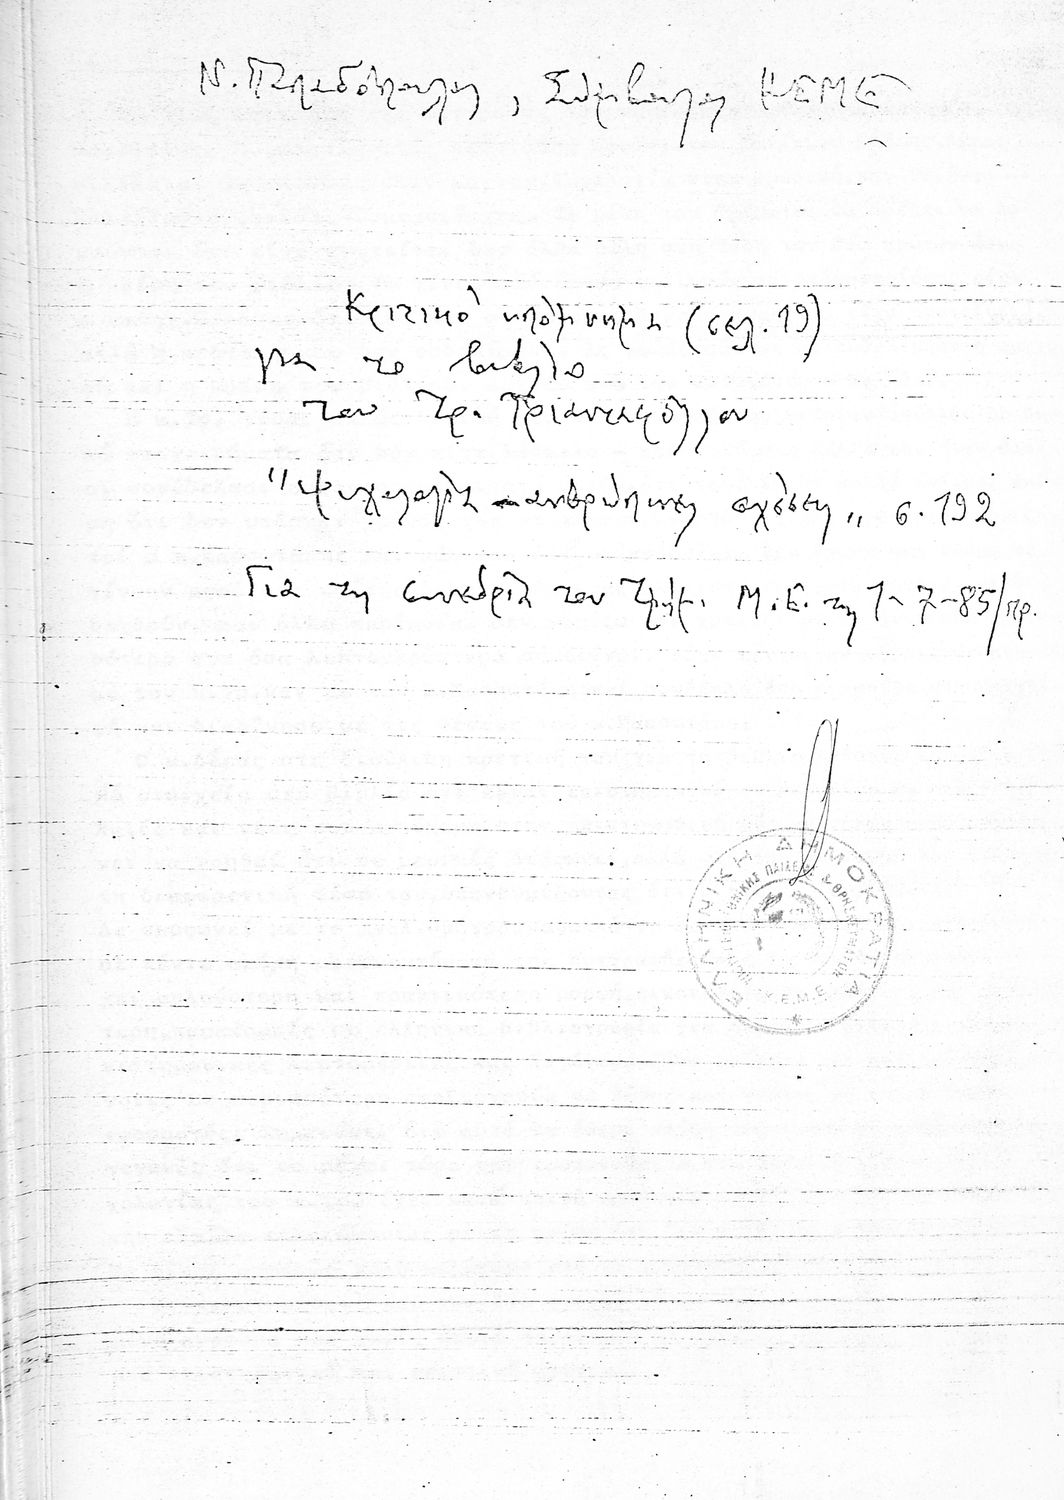 Ν. Παπαδόπουλος, Σύμβουλος ΚΕΜΕ
Κριτικό υπόμνημα (σελ. 19)
για το βιβλίο
του Τρ. Τριανταφύλλου
"Ψυχολογία - ανθρώπινες σχέσεις" σ. 192
Για τη συνεδρία του Τμήμ. Μ.Ε. της 1-7-85/πρ.
ΕΛΛΗΝΙΚΗ ΔΗΜΟΚΡΑΤΙΑ
ΠΑΙΔΕΙΑΣ & ΘΡΗΣΚΕΥΜΑΤΩΝ
Κ.Ε.Μ.Ε